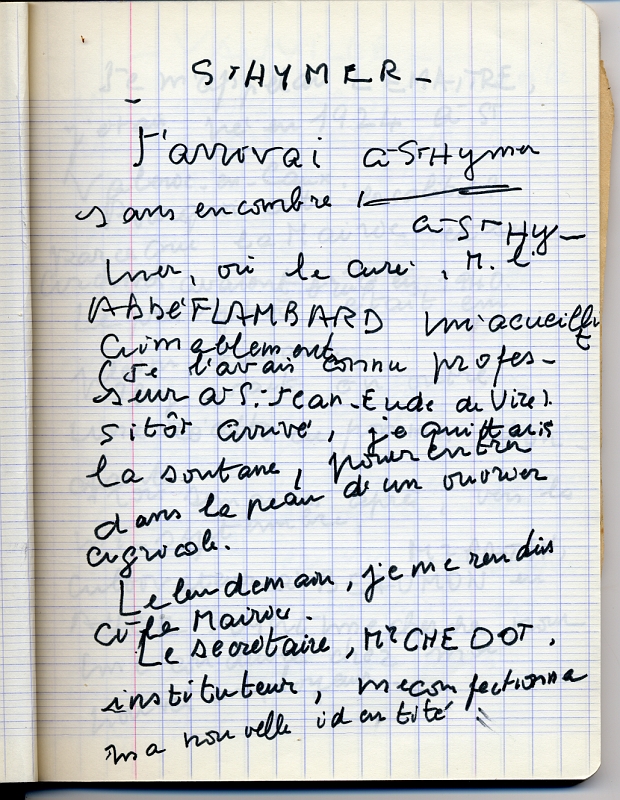 ST HYMER -
J'arrivai à St Hymer
sans encombre
à St Hy-
mer, où le curé, M. l'
ABbé FLAMBARD m'acueillit
aimablement
(Je l'avais connu profes-
seur à St. Jean-Eude de Vire).
sitôt arrivé, je quittais
la soutane, pour entrer
dans la peau de un ouvrier
agricole.
Le lendemain, je me rendis
à la Mairie.
Le secrétaire, Mr CHEDOT,
instituteur, me confectionna
ma nouvelle identité